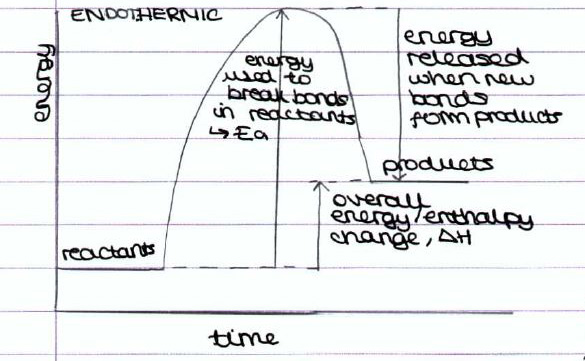 ENDOTHERMIC
energy
energy
used to
break bonds
in reactants
↳ Ea
energy
released
when new
bonds
form products
products
overall
energy/enthalpy
change, ΔH
reactants
time